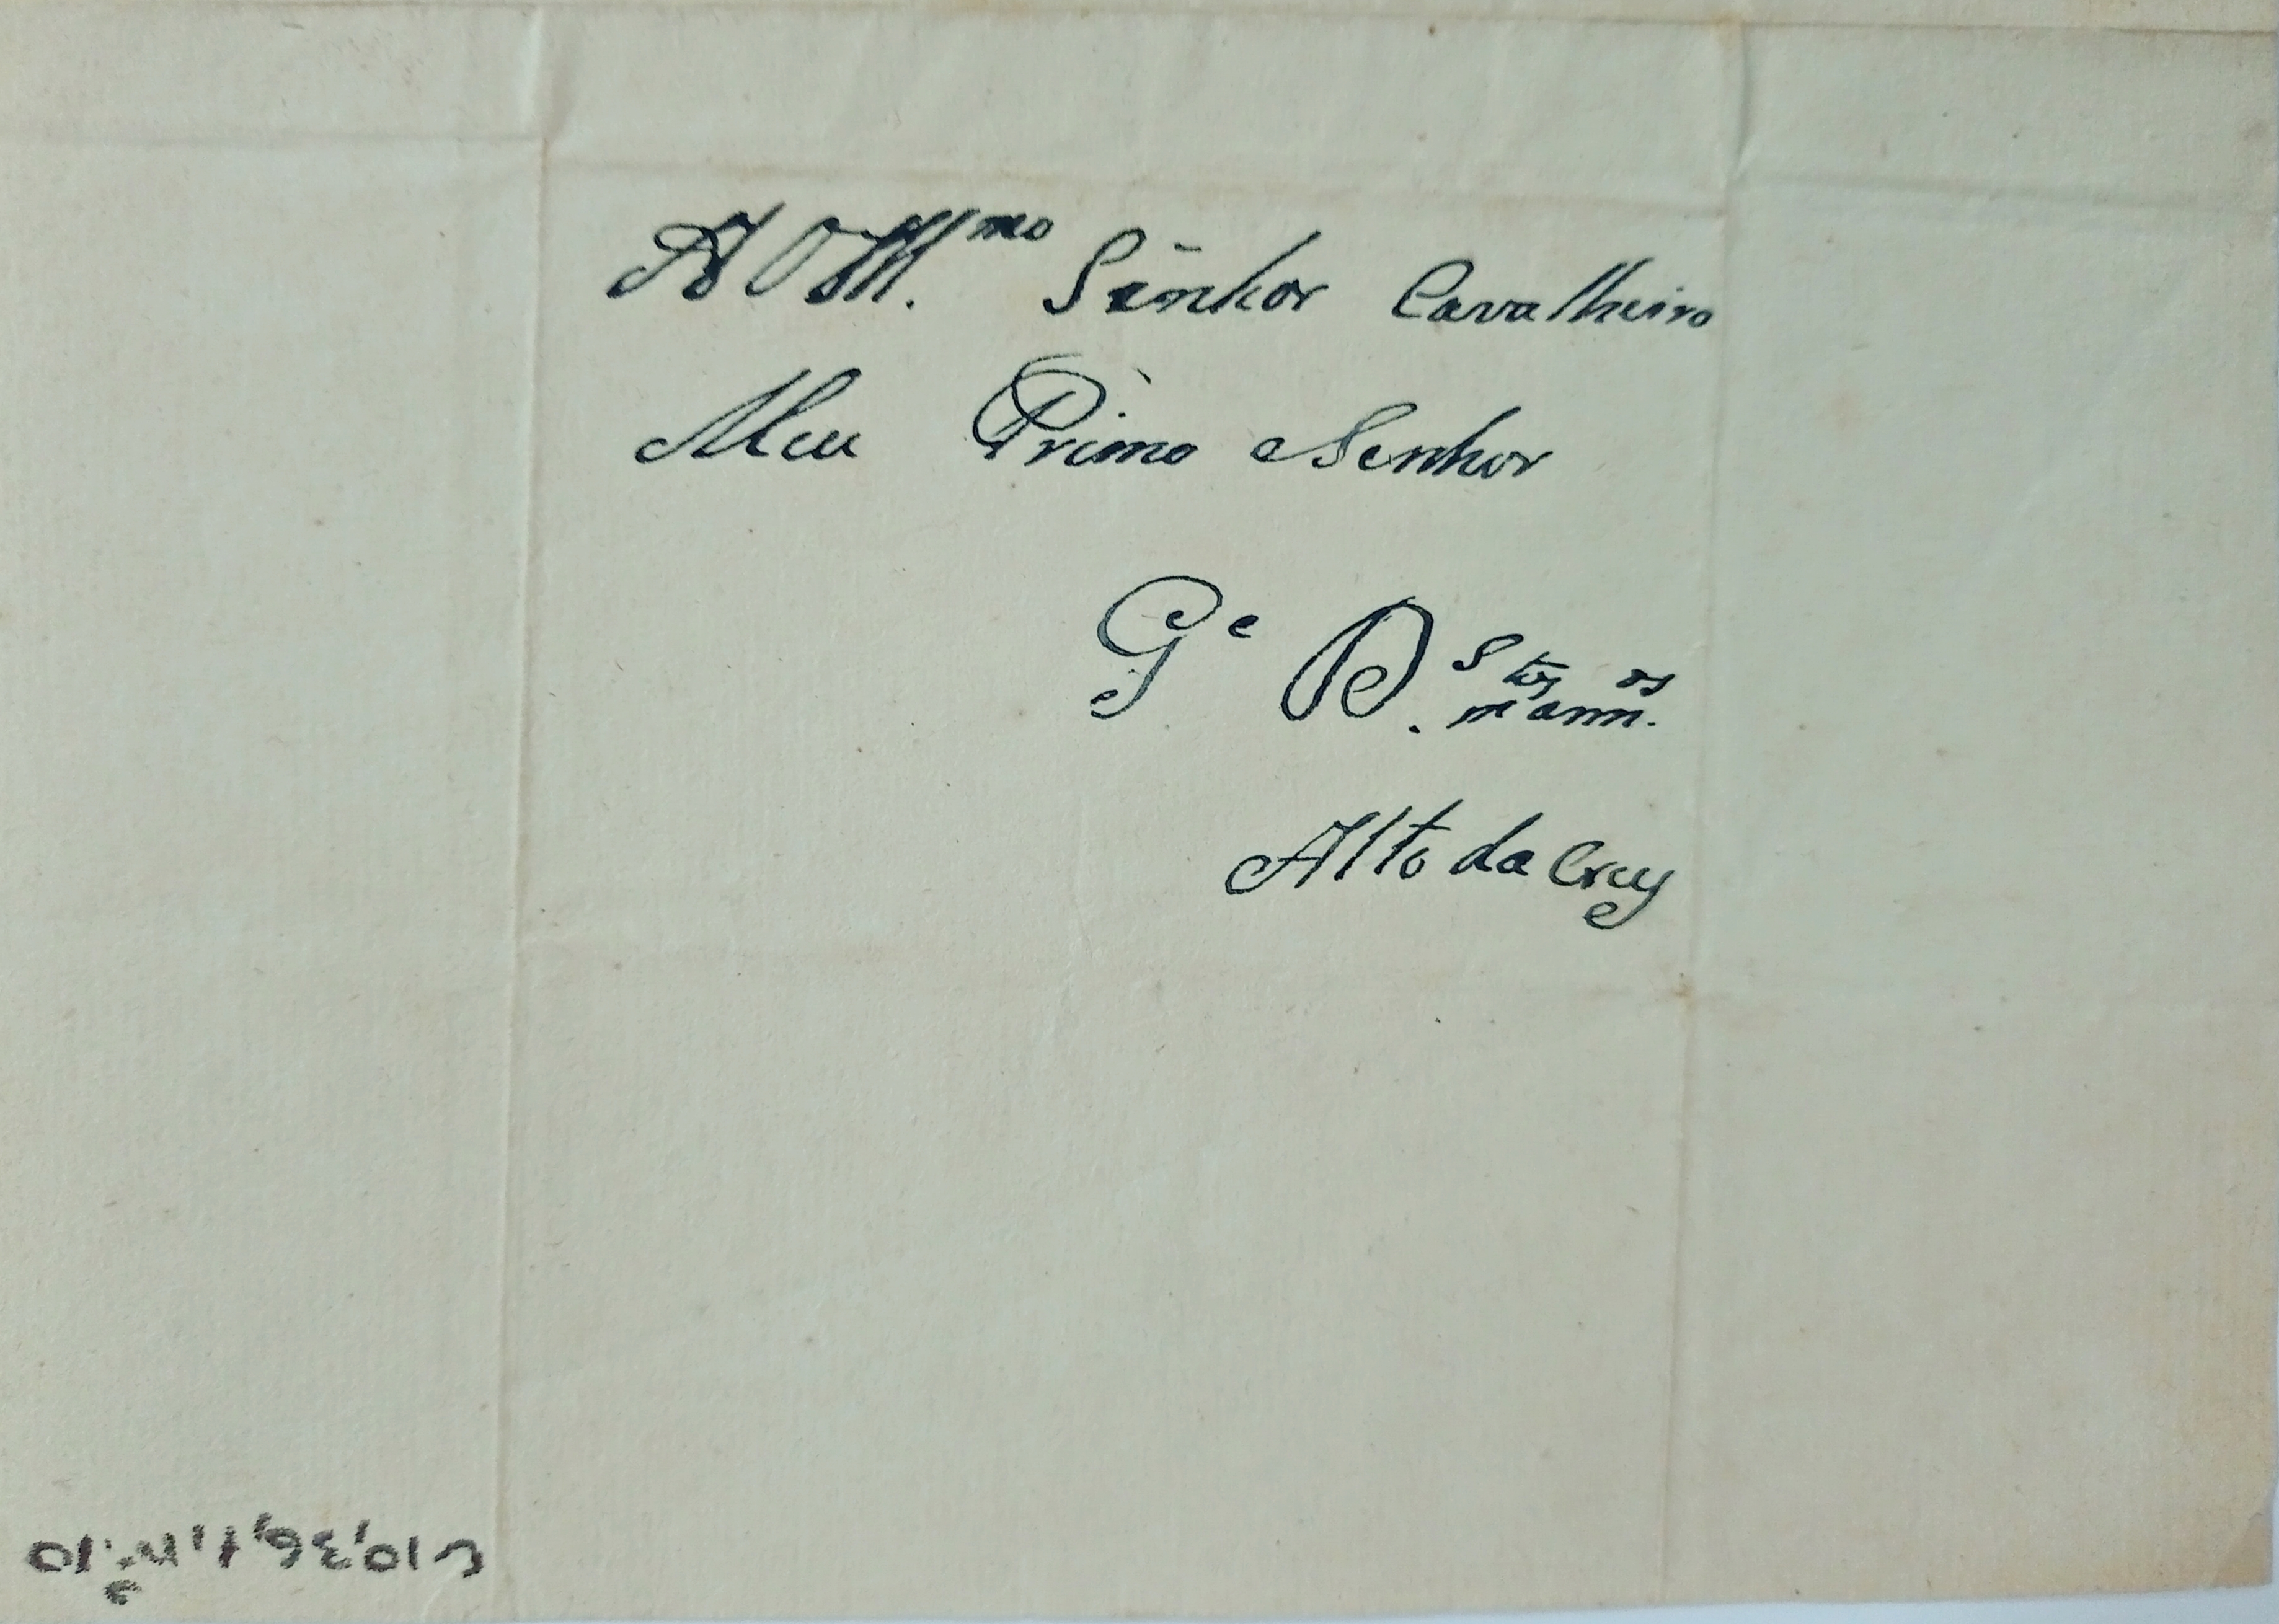 A O Ill.mo Senhor Cavalheiro
Meu Primo e Senhor
Ge D.s mtos annos.
Alto da Cruz
C10,36,1,nº.10